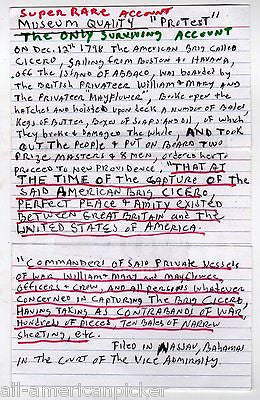 SUPER RARE ACCOUNT
MUSEUM QUALITY "PROTEST"
THE ONLY SURVIVING ACCOUNT
ON DEC. 12th 1798 THE AMERICAN BRIG CALLED
CICERO, SAILING FROM BOSTON to HAVANA,
OFF THE ISLAND OF ABBACO, WAS BOARDED BY
THE BRITISH PRIVATEER WILLIAM & MARY AND
THE PRIVATEER MAYFLOWER, BROKE UPEN THE
HATCHES AND HOISTED UPON DECK A NUMBER OF BALES
KEGS OF BUTTER, BOXES OF SOAPS AND OIL, OF WHICH
THEY BROKE & DAMAGED THE WHOLE, AND TOOK
OUT THE PEOPLE & PUT ON BOARD TWO
PRIZE MASTERS & 8 MEN, ORDERED HER TO
PROCEED TO NEW PROVIDENCE, "THAT AT
THE TIME OF THE CAPTURE OF THE
SAID AMERICAN BRIG CICERO,
PERFECT PEACE & AMITY EXISTED
BETWEEN GREAT BRITAIN and THE
UNITED STATES OF AMERICA.
"COMMANDERS OF SAID PRIVATE VESSELS
OF WAR WILLIAM & MARY AND MAYFLOWER,
OFFICERS & CREW, AND ALL PERSONS WHATEVER
CONCERNED IN CAPTURING THE BRIG CICERO,
HAVING TAKING AS CONTRABANDS OF WAR,
HUNDREDS OF PIECES, TEN BALES OF NARROW
SHEETING, ETC.
FILED IN NASSAU, BAHAMAS
IN THE COURT OF THE VICE ADMIRALTY.
all-americanpicker